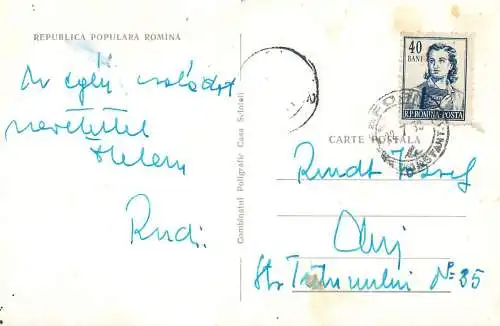 REPUBLICA POPULARA ROMINA
Az egész családot
szeretettel
Helen
Rudi.
Combinatul Poligrafic Casa Scînteii
40
BANI
R.P.ROMINA POSTA
CARTE POSTALA
CONSTANTA
Rundt József
Cluj
Str. No 35